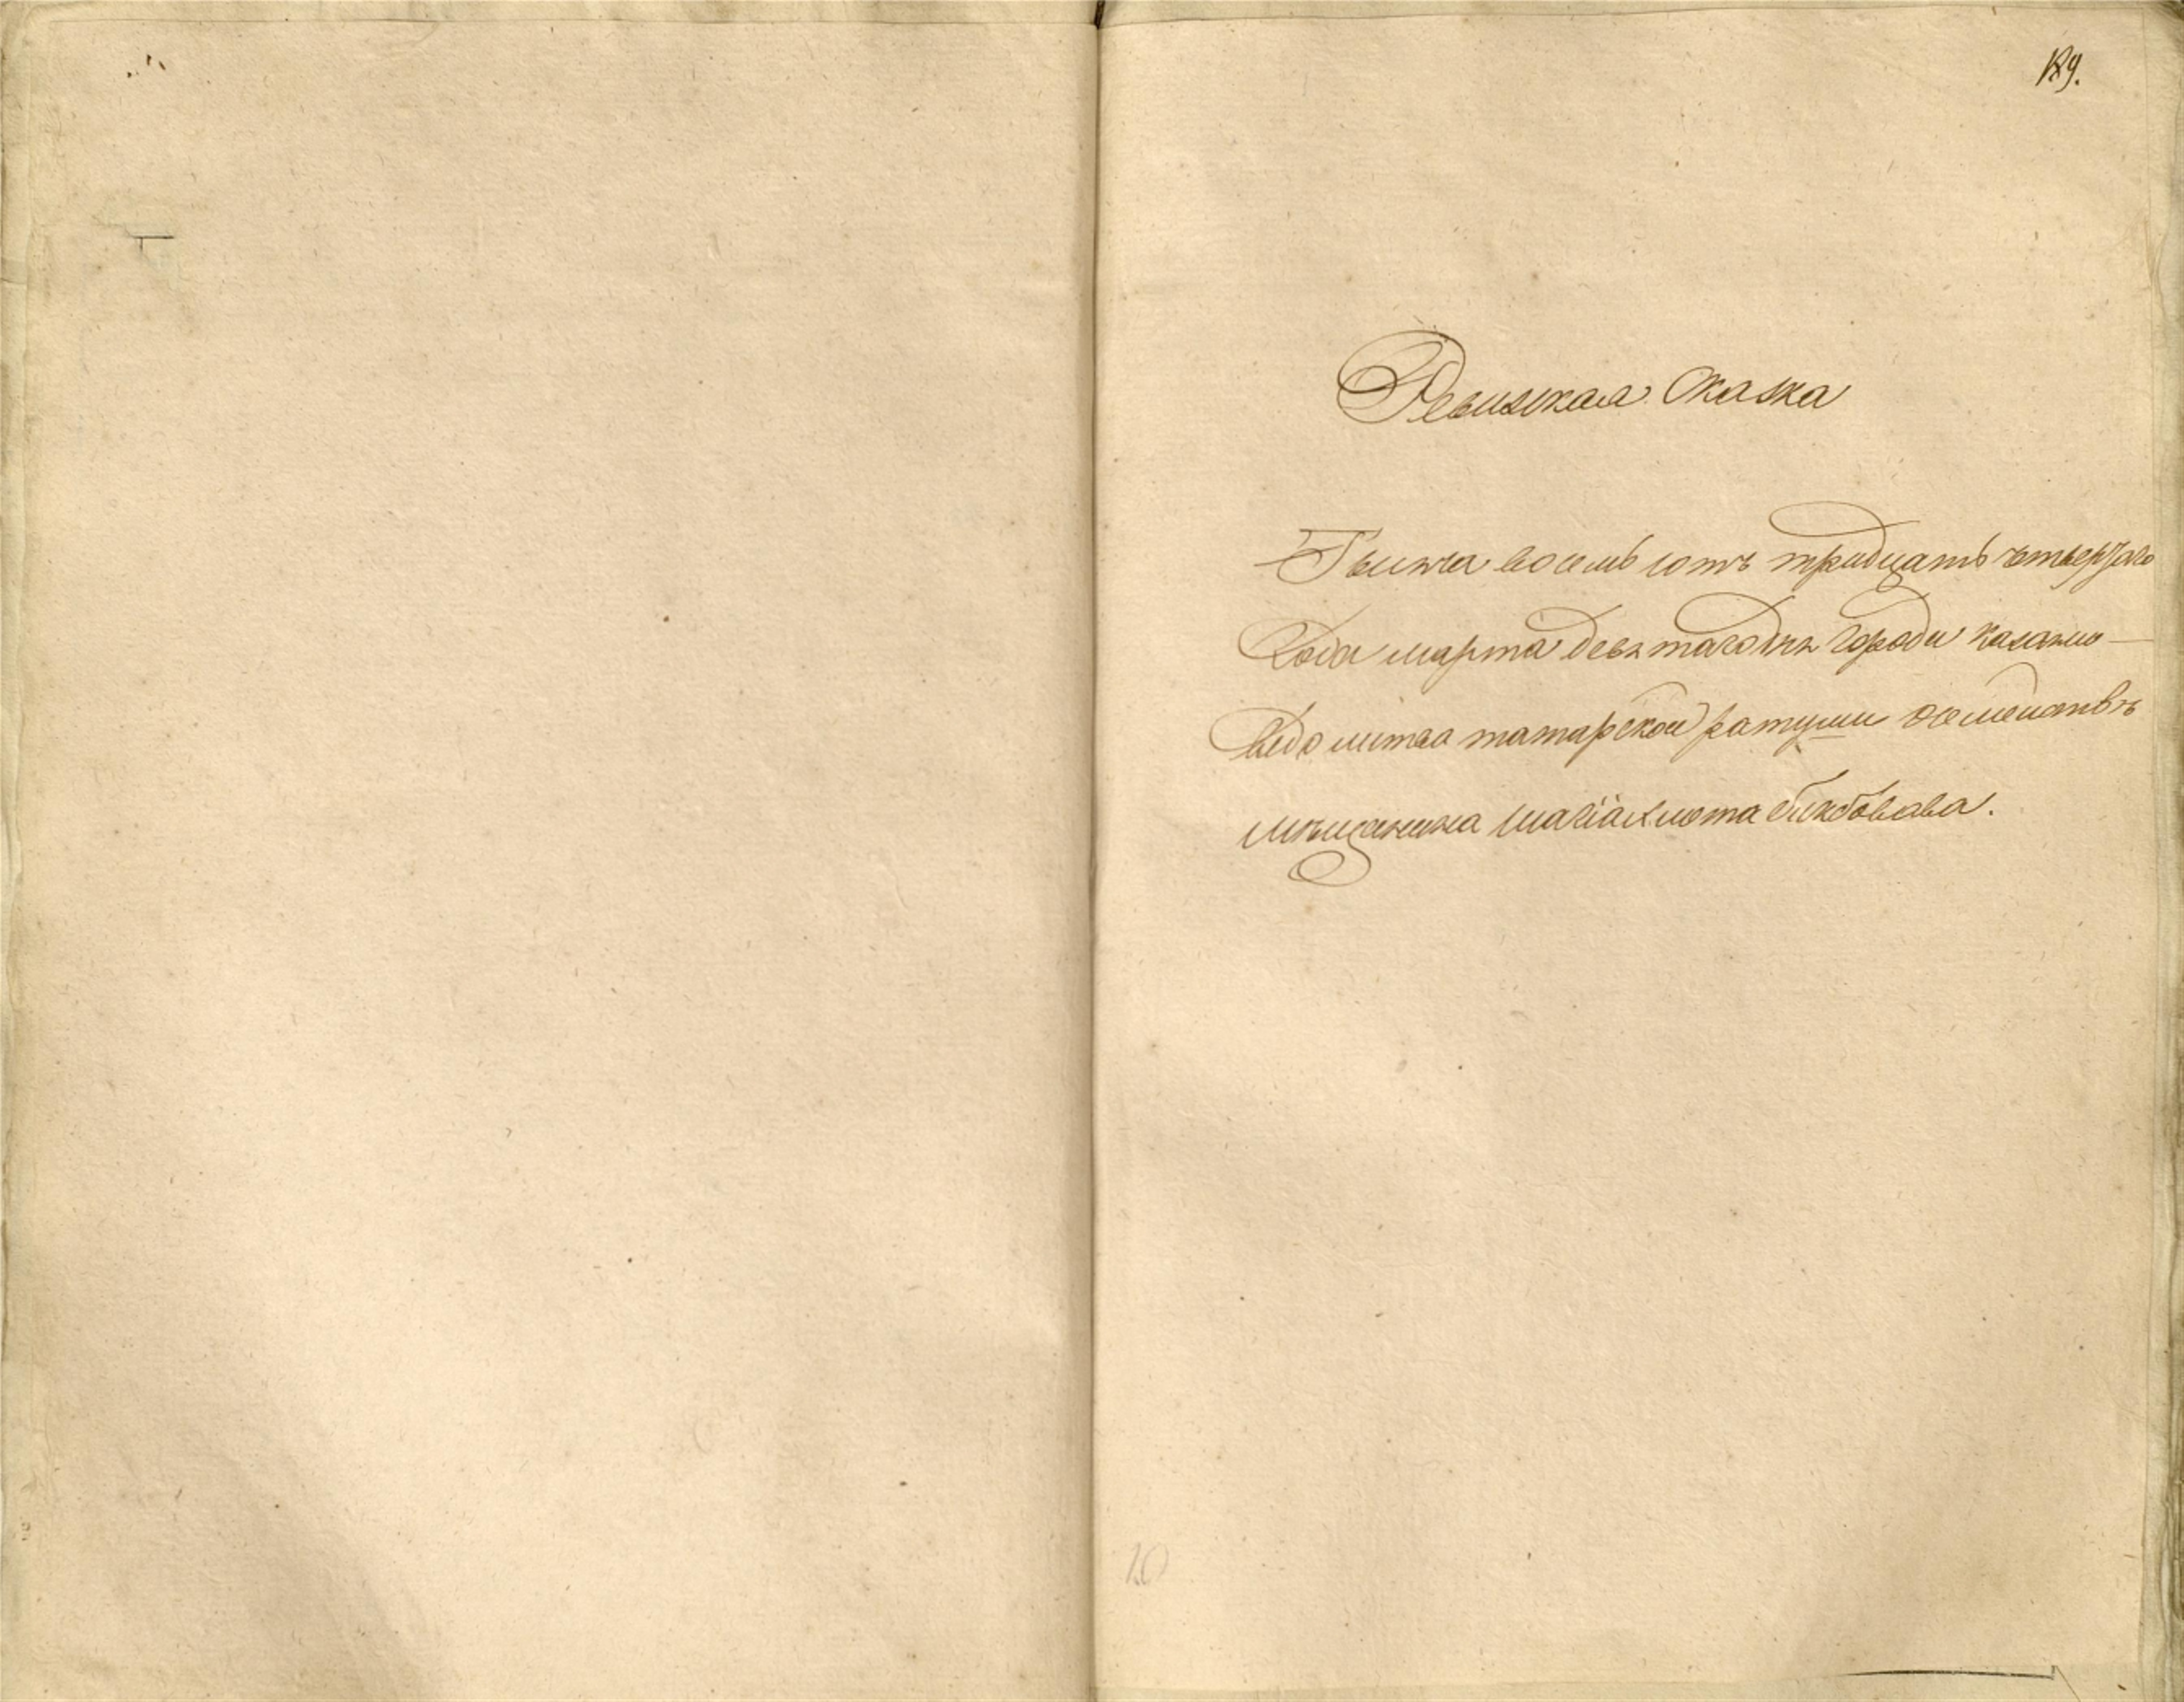 189.
Ревизская Сказка
Тысяча восемь сотъ тридцать четвертаго
Года марта девятаго дня города казани
ведомства татарской ратуши осемействе
мѣщанина Шагiахмета Бикбовава.
10